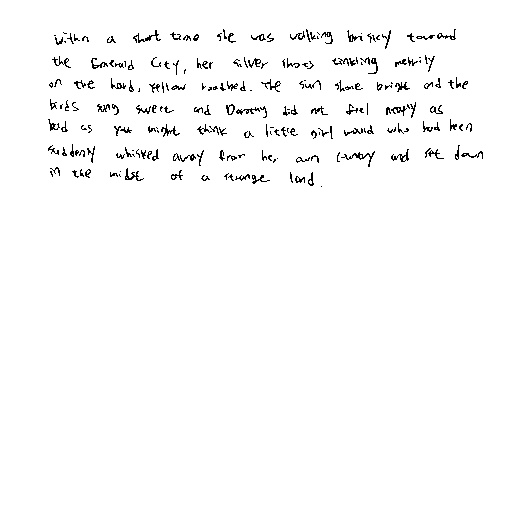 Within a short time she was walking briskly toward
the Emerald City, her silver shoes tinkling merrily
on the hard, yellow roadbed. The sun shone bright and the
birds sang sweet and Dorothy did not feel nearly as
bad as you might think a little girl would who had been
suddenly whisked away from her own country and set down
in the midst of a strange land.